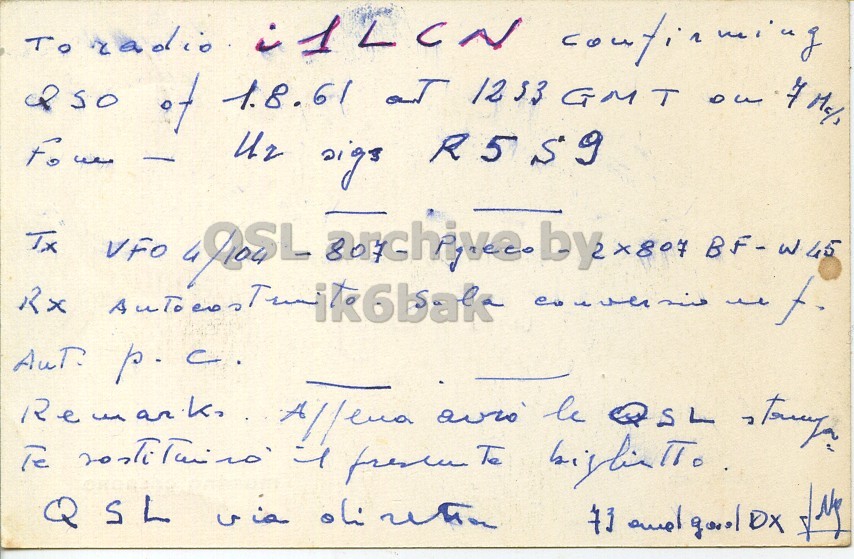 To radio i1LCN confirming
QSO of 1.8.61 at 1233 GMT on 7 Mc/s
Fone — Ur sigs R5 S9
Tx VFO 4/104 - 807 - Pgreco - 2x807 BF - W 45
Rx Autocostruito Sola conversione f.
Ant. p. c.
Remarks. Appena avrò le QSL stampa=
te sostituirò il presente biglietto.
QSL via diretta 73 and good DX
QSL archive by
ik6bak